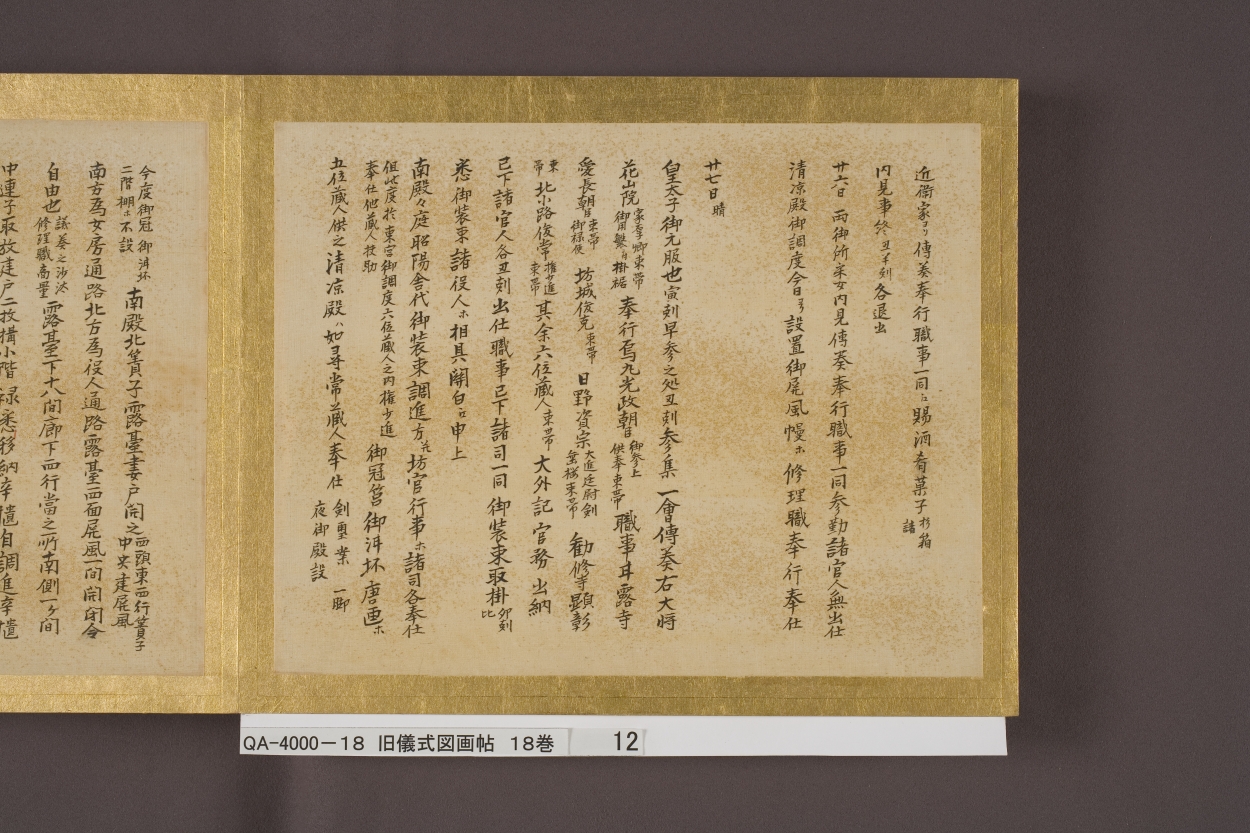 近衛家ゟ傳奏奉行職事一同ニ賜酒肴菓子 杉箱 諸
内見事終丑半刻各退出
廿六日 両御所采女内見傳奏奉行職事一同参勤諸官人無出仕
清凉殿御調度今日ゟ設置御屏風幔ホ修理職奉行奉仕
廿七日 晴
皇太子御元服也寅刻早参之処丑刻参集 一會傳奏右大将
花山院 家厚卿束帯 御用繁自掛裾 奉行烏丸光政朝臣 御参上 供奉束帯 職事甘露寺
愛長朝臣 束帯 御禄使 坊城俊克 束帯 日野資宗 大進廷尉剣 無襪束帯 勧修寺顕彰
束帯 北小路俊常 権少進 束帯 其余六位蔵人 束帯 大外記 官務 出納
已下諸官人各丑刻出仕職事已下諸司一同 御装束取掛 卯刻比
悉御装束諸役人ホ相具関白ニ申上
南殿々庭昭陽舎代御装束調進方并坊官行事ホ諸司各奉仕
但此度於東宮御調度六位蔵人之内権少進 奉仕他蔵人扶助 御冠筥御泔坏唐匣ホ
五位蔵人供之清凉殿ハ如尋常蔵人奉仕 剣璽案 一脚 夜御殿設
今度御冠 御泔坏 二階棚ホ不設 南殿北簀子露臺妻戸開之 西頭東西行簀子 中央建屏風
南方為女房通路北方為役人通路露臺西面屏風一間開閉令
自由也 議奏之沙汰 修理職高量 露臺下十八間廊下西行當之所南側一ヶ間
中連子取放建戸二枚構小階 禄悉移納辛櫃自調進辛櫃
QA-4000-18 旧儀式図画帖 18巻 12